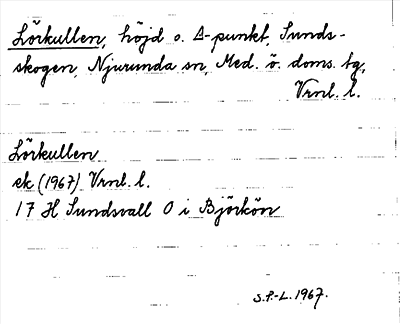 Lörkullen, höjd o. Δ-punkt, Sunds-
skogen, Njurunda sn, Med. ö. doms. tg,
Vrnl. l.
Lörkullen
ek (1967) Vrnl. l.
17 H Sundsvall O i Björkön
S.P.-L. 1967.